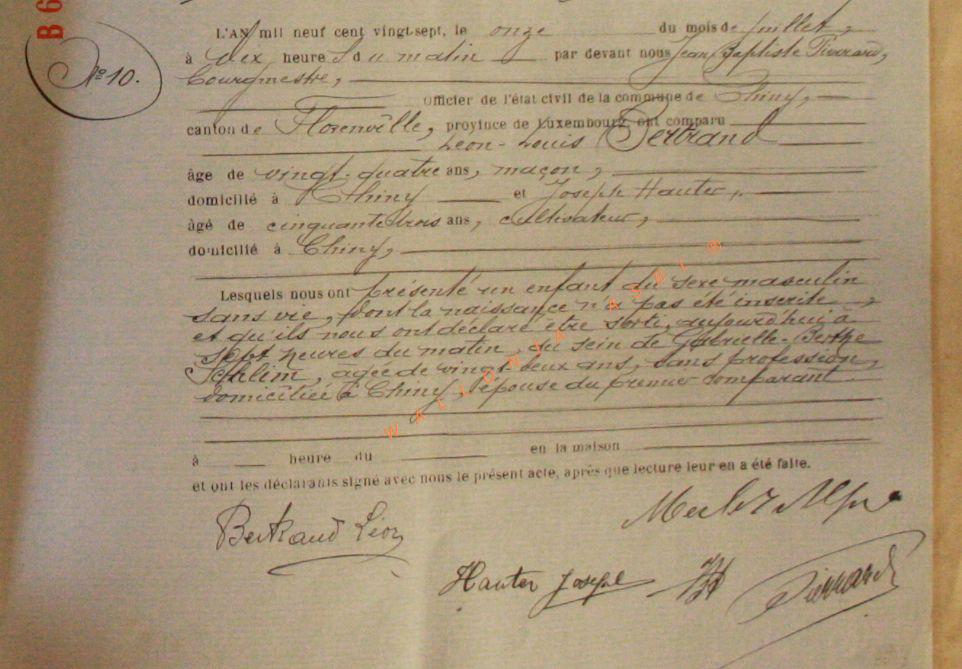 B6
No 10.
L'AN mil neuf cent vingt-sept, le onze du mois de juillet,
à dix heures du matin par devant nous Jean Baptiste Pierrard,
Bourgmestre,
Officier de l'état civil de la commune de Chiny,
canton de Florenville, province de Luxembourg ont comparu
Léon-Louis Bertrand
âge de vingt-quatre ans, maçon,
domicilié à Chiny et Joseph Hauter,
âgé de cinquante trois ans, cultivateur,
domicilié à Chiny,
Lesquels nous ont présenté un enfant du sexe masculin
sans vie, dont la naissance n'a pas été inscrite,
et qu'ils nous ont déclaré être sorti, aujourd'hui à
sept heures du matin, du sein de Gabrielle-Berthe
âgée de vingt deux ans, sans profession,
domiciliée à Chiny, épouse du premier comparant
à heure du en la maison
et ont les déclarants signé avec nous le présent acte, après que lecture leur en a été faite.
Bertrand Léon
Hauter Joseph
Pierrard